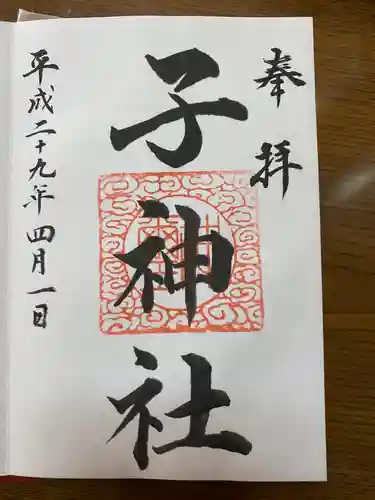 奉拝
子神社
平成二十九年四月一日